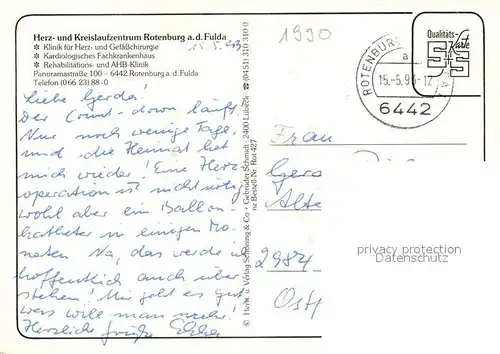 Herz- und Kreislaufzentrum Rotenburg a.d. Fulda
✻ Klinik für Herz- und Gefäßchirurgie
✻ Kardiologisches Fachkrankenhaus
✻ Rehabilitations- und AHB-Klinik
Panoramastraße 100 – 6442 Rotenburg a. d. Fulda
Telefon (066 23) 88-0
Liebe Gerda!
Der Count-down läuft.
Nur noch wenige Tage,
und die Heimat hat
mich wieder! Eine Herz-
operation ist nicht nötig
wohl aber ein Ballon-
katheter in einigen Mo-
naten. Na, das werde ich
hoffentlich auch über-
stehen! Mir geht es gut
was will man mehr!
Herzliche Grüße
© Herst. u. Verlag Schöning & Co + Gebrüder Schmidt · 2400 Lübeck · ☎ (0451) 310 310 0
nz Bestell-Nr. Rot 427
1990
ROTENBURG
a
15.-5.9 -12
6442
Qualitäts-
Karte
Frau
Alte
2984
privacy protection
Datenschutz